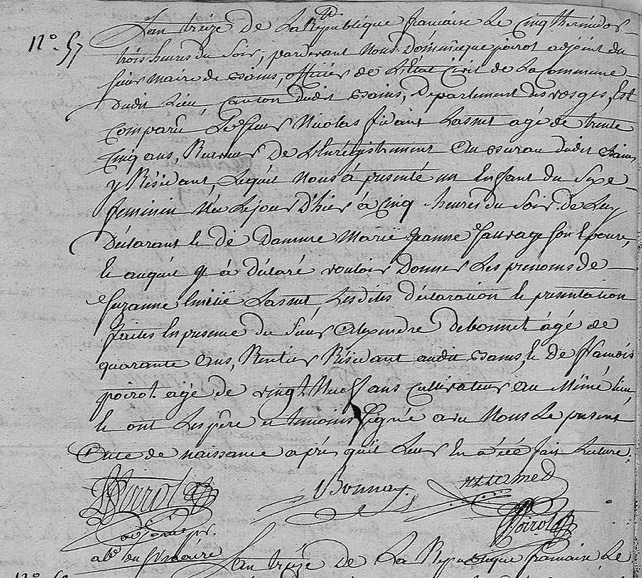 N.° 57
L'an treize de La République francaise Le Cinq thermidor
trois heures du Soir, pardevant Nous Dominique poirot adjoint du
Sieur maire de, officier de L'Etat Civil de La Commune
dudit Lieu, Canton dudit, Département des vosges, Est
Comparu Le Sieur Nicolas agé de trente
Cinq ans, Receveur de L'Enregistrement au Bureau dudit
y Résidant, Lequel Nous à présenté un Enfant du Sexe
feminin Née Le jour D'hier à Cinq heures du Soir de Luy
Déclarant et de Damme Marie jeanne Sauvage Son Epouse,
et auquel il à déclaré vouloir Donner Les prenoms de
Suzanne, Lesdites déclaration et présentation
faites En presence du Sieur Alexandre agé de
quarante ans, Rentier Résidant audit, et De francois
poirot agé de vingt Neuf ans cultivateur au Même lieu
et ont Les père et temoins Signés avec Nous Le présent
Acte de naissance après qu'il Leur En a été fait Lecture.
Poirot
Poirot
L'an treize de La République francaise Le